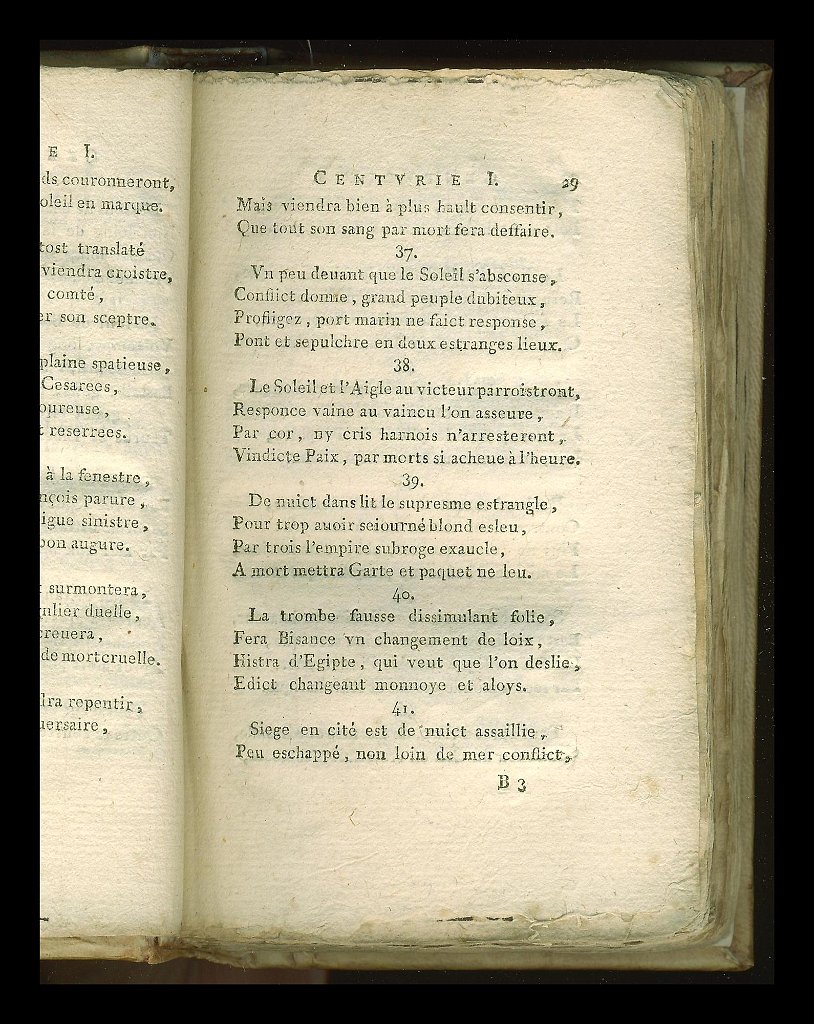 E I.
ds couronneront,
oleil en marque.
tost translaté
viendra croistre,
comté,
er son sceptre.
plaine spatieuse,
Cesarees,
oureuse,
t reserrees.
à la fenestre,
nçois parure,
igue sinistre,
bon augure.
surmontera,
nlier duelle,
creuera,
de mort cruelle.
dra repentir,
uersaire,
CENTVRIE I. 29
Mais viendra bien à plus hault consentir,
Que tout son sang par mort fera deffaire.
37.
Vn peu deuant que le Soleil s'absconse,
Conflict donne, grand peuple dubiteux,
Profligez, port marin ne faict response,
Pont et sepulchre en deux estranges lieux.
38.
Le Soleil et l'Aigle au victeur parroistront,
Responce vaine au vaincu l'on asseure,
Par cor, ny cris harnois n'arresteront,
Vindicte Paix, par morts si acheue à l'heure.
39.
De nuict dans lit le supresme estrangle,
Pour trop auoir seiourné blond esleu,
Par trois l'empire subroge exaucle,
A mort mettra Garte et paquet ne leu.
40.
La trombe fausse dissimulant folie,
Fera Bisance vn changement de loix,
Histra d'Egipte, qui veut que l'on deslie,
Edict changeant monnoye et aloys.
41.
Siege en cité est de nuict assaillie,
Peu eschappé, non loin de mer conflict,
B 3